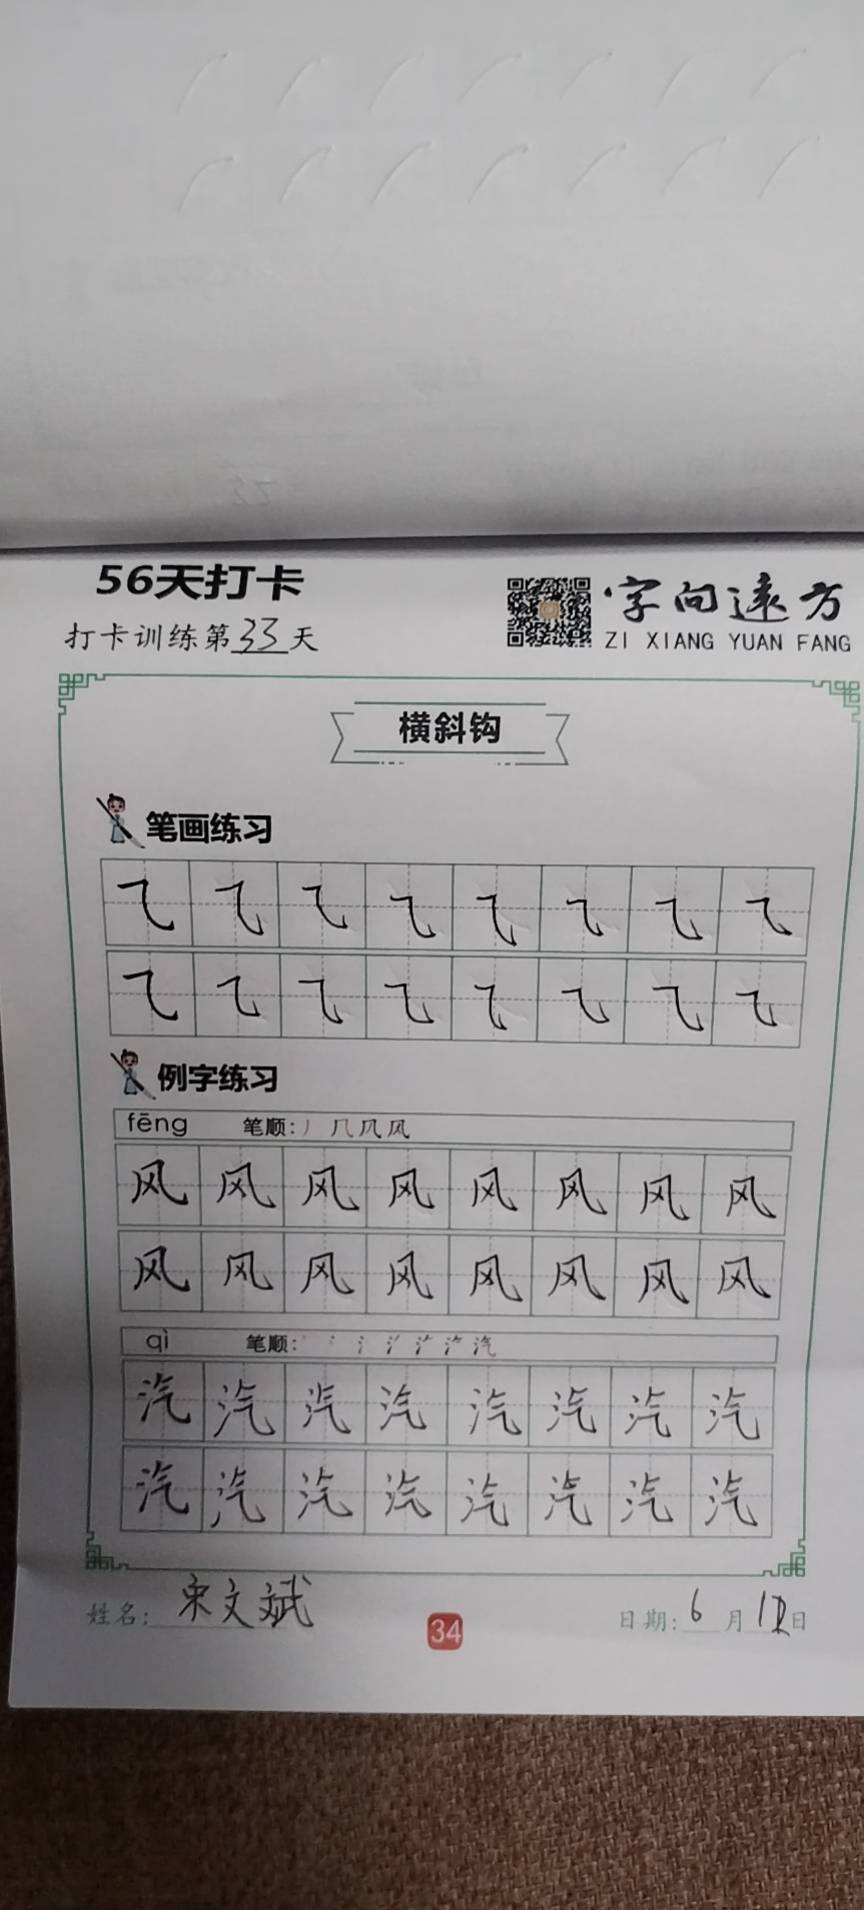 56天打卡
字向遠方
打卡训练第33天
ZI XIANG YUAN FANG
横斜钩
笔画练习
⺄⺄⺄⺄⺄⺄⺄⺄
⺄⺄⺄⺄⺄⺄⺄⺄
例字练习
fēng 笔顺:丿几凨风
风风风风风风风风
风风风风风风风风
qì 笔顺: 汽
汽汽汽汽汽汽汽汽
汽汽汽汽汽汽汽汽
姓名: 宋文斌
34
日期: 6月12日